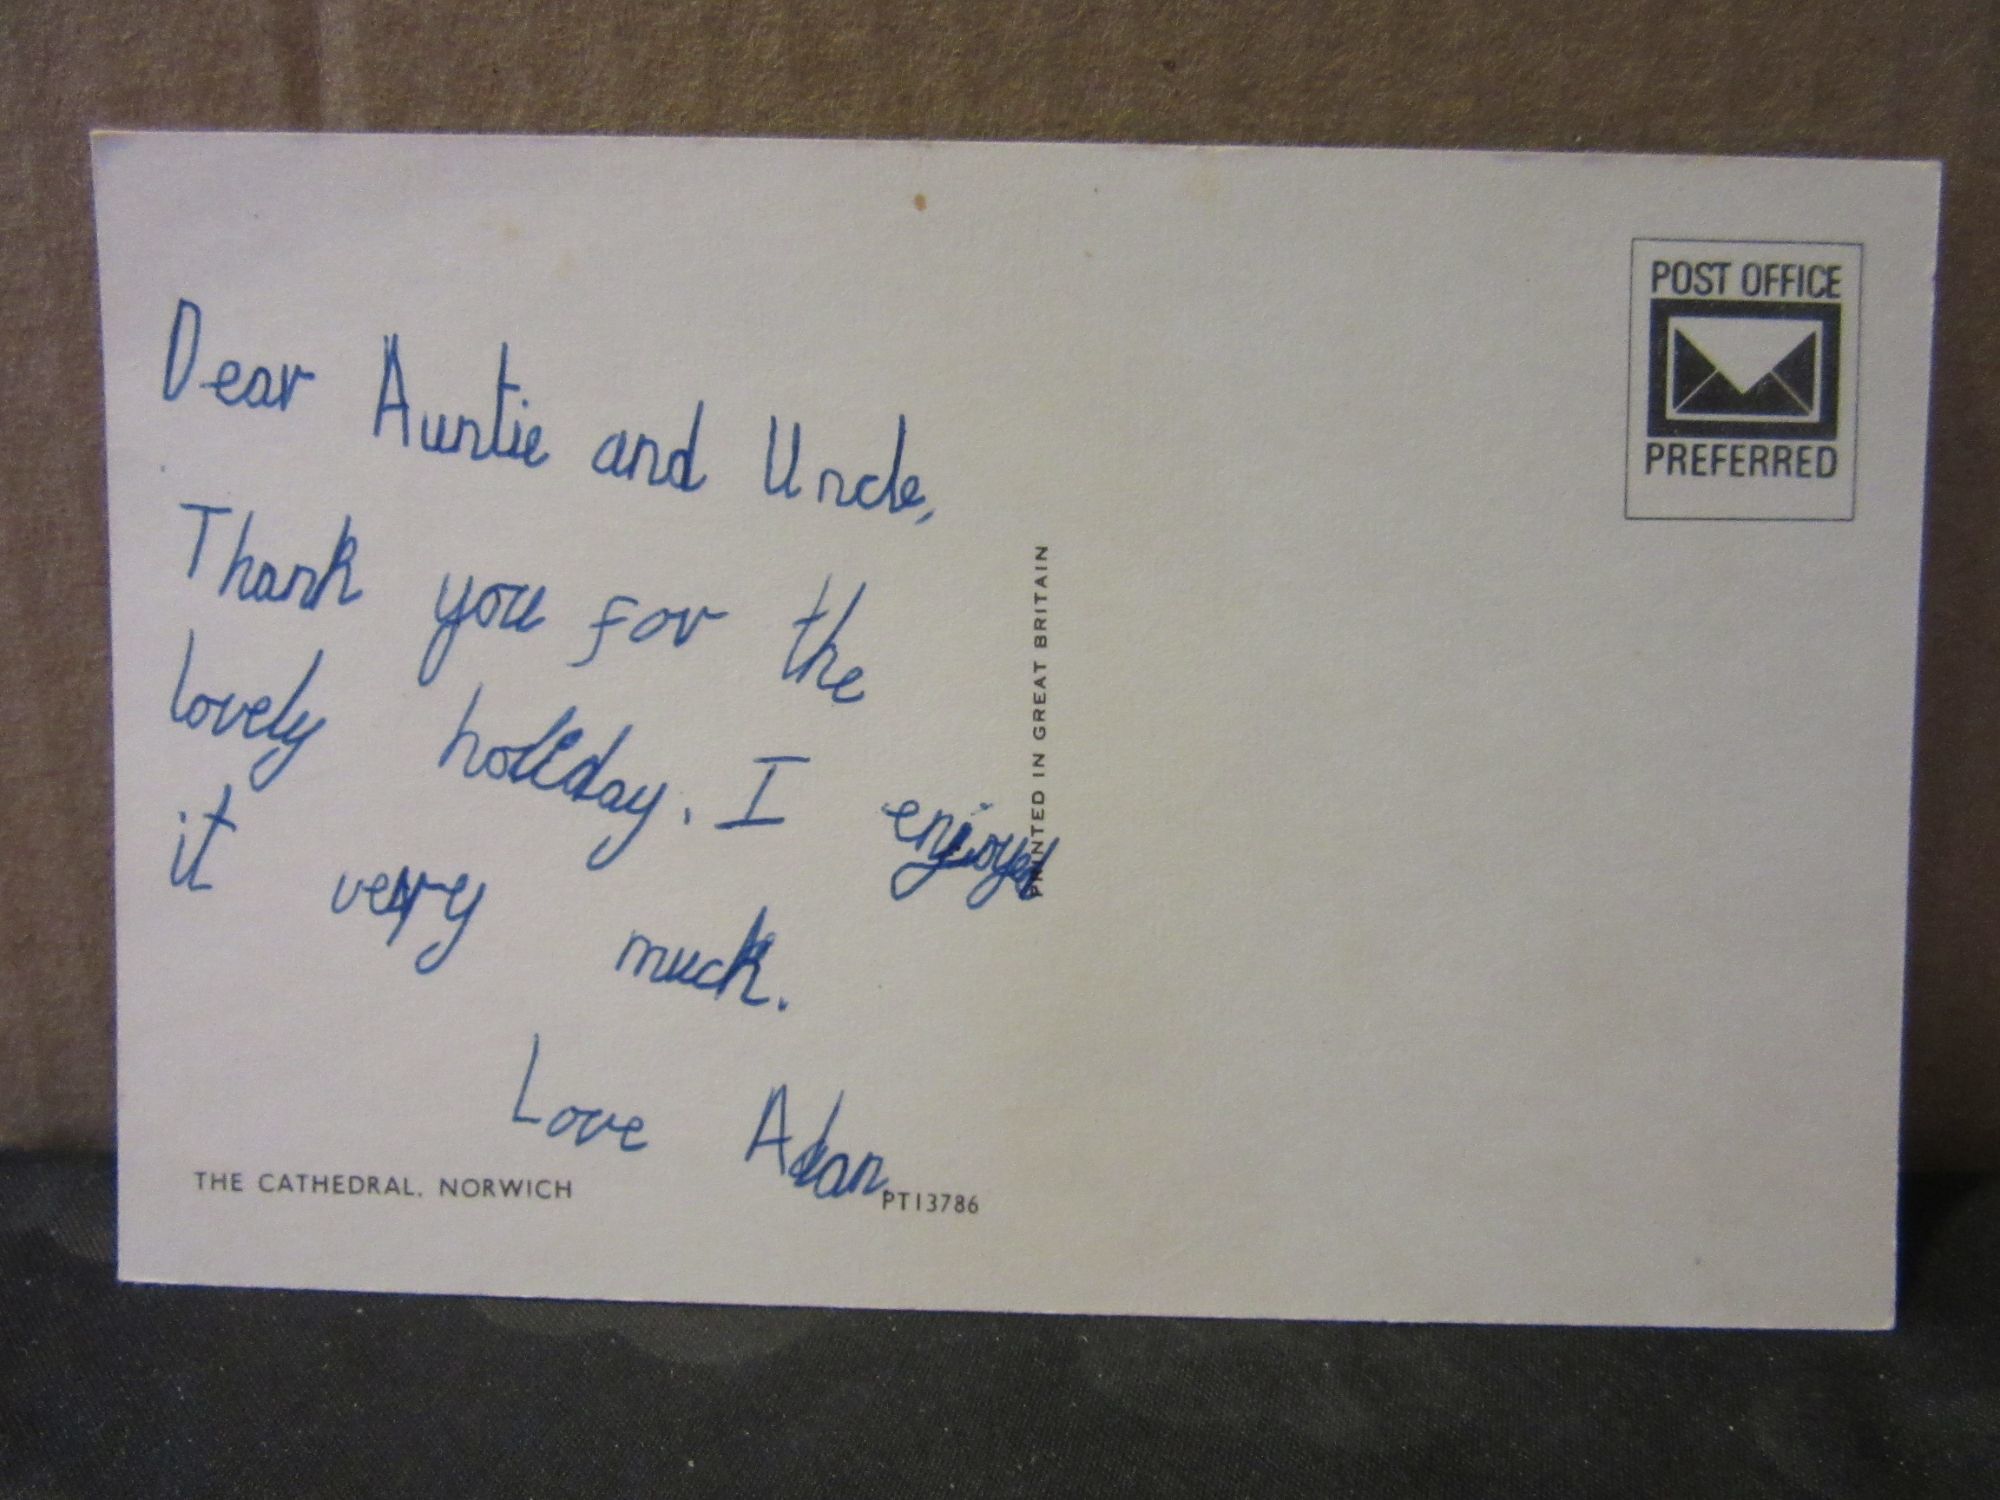 Dear Auntie and Uncle,
Thank you for the
lovely holiday. I enjoyed
it very much.
Love Adan
THE CATHEDRAL, NORWICH
PT13786
PRINTED IN GREAT BRITAIN
POST OFFICE
PREFERRED